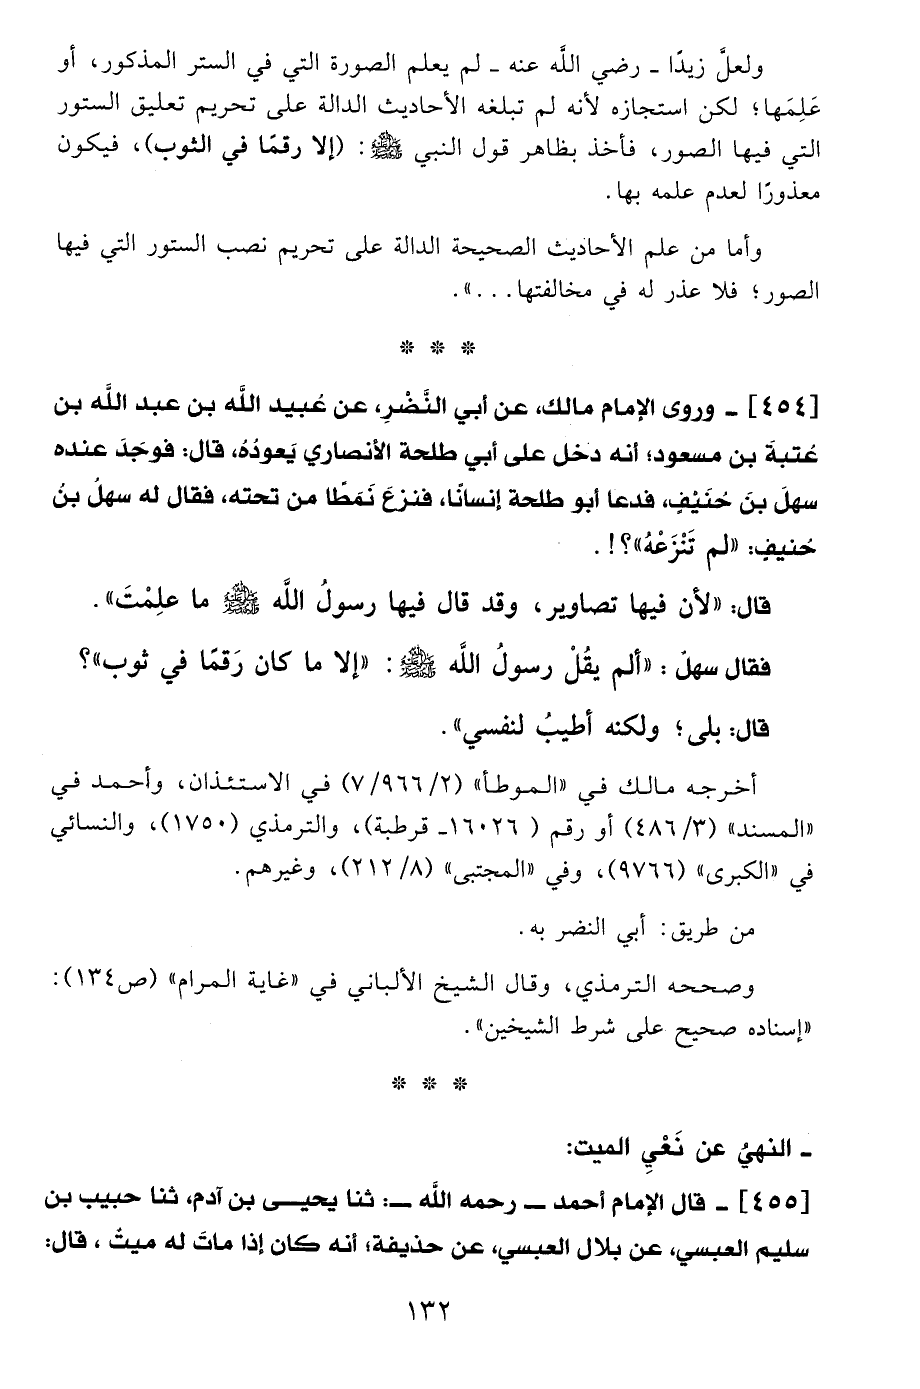 ولعلَّ زيدًا ـ رضي اللَّه عنه ـ لم يعلم الصورة التي في الستر المذكور، أو
عَلِمَها؛ لكن استجازه لأنه لم تبلغه الأحاديث الدالة على تحريم تعليق الستور
التي فيها الصور، فأخذ بظاهر قول النبي ﷺ: (إلا رقمًا في الثوب)، فيكون
معذورًا لعدم علمه بها.
وأما من علم الأحاديث الصحيحة الدالة على تحريم نصب الستور التي فيها
الصور؛ فلا عذر له في مخالفتها...».
* * *
[٤٥٤] ـ وروى الإمام مالك، عن أبي النَّضْرِ، عن عُبيد اللَّه بن عبد اللَّه بن
عُتبةَ بن مسعود؛ أنه دخل على أبي طلحة الأنصاري يَعودُهُ، قال: فوجَدَ عنده
سهلَ بنَ حُنَيْفٍ، فدعا أبو طلحة إنسانًا، فنزعَ نَمَطًا من تحته، فقال له سهلُ بنُ
حُنيفٍ: «لم تَنْزَعْهُ»؟!.
قال: «لأن فيها تصاوير، وقد قال فيها رسولُ اللَّه ﷺ ما علِمْتَ».
فقال سهلٌ: «ألم يقُلْ رسولُ اللَّه ﷺ: «إلا ما كان رَقمًا في ثوب»؟
قال: بلى؛ ولكنه أطيبُ لنفسي».
أخرجه مالك في «الموطأ» (٢/ ٩٦٦/ ٧) في الاستئذان، وأحمد في
«المسند» (٣/ ٤٨٦) أو رقم ( ١٦٠٢٦ـ قرطبة)، والترمذي (١٧٥٠)، والنسائي
في «الكبرى» (٩٧٦٦)، وفي «المجتبى» (٨/ ٢١٢)، وغيرهم.
من طريق: أبي النضر به.
وصححه الترمذي، وقال الشيخ الألباني في «غاية المرام» (ص١٣٤):
«إسناده صحيح على شرط الشيخين».
* * *
ـ النهيُ عن نَعْيِ الميت:
[٤٥٥] ـ قال الإمام أحمد ـ رحمه الله ـ: ثنا يحيى بن آدم، ثنا حبيب بن
سليم العبسي، عن بلال العبسي، عن حذيفة؛ أنه كان إذا ماتَ له ميتٌ ، قال:
١٣٢